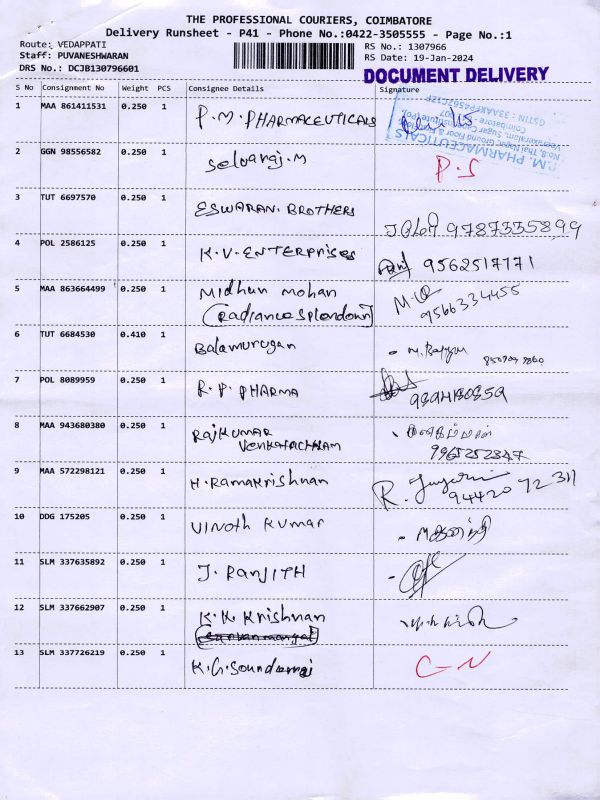 THE PROFESSIONAL COURIERS, COIMBATORE
Delivery Runsheet - P41 - Phone No.:0422-3505555 - Page No.:1
Route: VEDAPPATI
Staff: PUVANESHWARAN
DRS No.: DCJB130796601
RS No.: 1307966
RS Date: 19-Jan-2024
DOCUMENT DELIVERY
S No Consignment No Weight PCS Consignee Details Signature
1 MAA 861411531 0.250 1 P.M. PHARMACEUTICALS
P.M. PHARMACEUTICALS
2 GGN 98556582 0.250 1 Selvaraj.M P.S
3 TUT 6697570 0.250 1 ESWARAN. BROTHERS 9787335899
4 POL 2586125 0.250 1 K.V. ENTERPRISES 9562517771
5 MAA 863664499 0.250 1 Midhun mohan
(Radiance Splendour) 9566334455
6 TUT 6684530 0.410 1 Balamurugan
7 POL 8089959 0.250 1 R.P. PHARMA
8 MAA 943680380 0.250 1 RAJKUMAR
VENKATACHALAM 9965252347
9 MAA 572298121 0.250 1 H. Ramakrishnan R.
94420 72311
10 DDG 175205 0.250 1 Vinoth Kumar
11 SLM 337635892 0.250 1 J. RANJITH
12 SLM 337662907 0.250 1 K.K. Krishnan
13 SLM 337726219 0.250 1 K.G. Soundarraj C-N